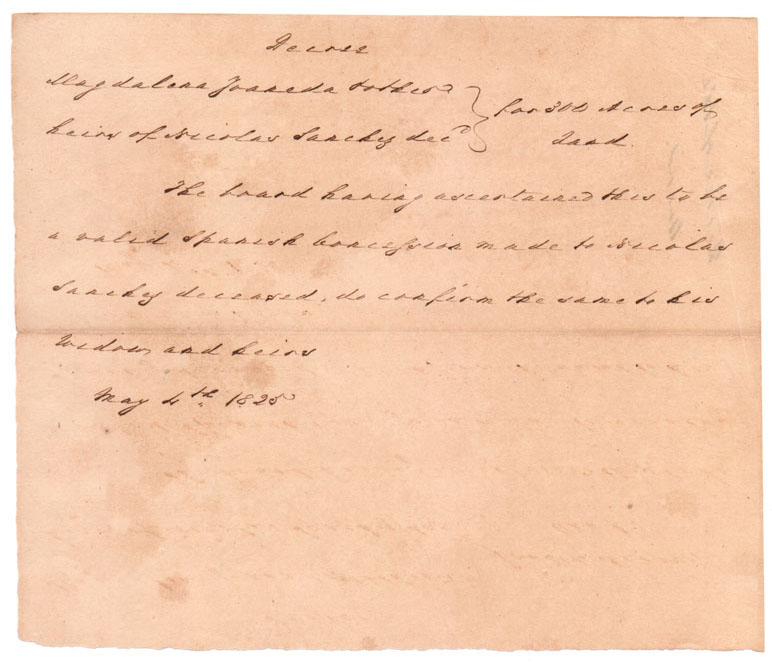 Decree
Magdalena Joaneda & other
heirs of Nicolas Sanchez decd
for 300 Acres of
Land.
The board having ascertained this to be
a valid Spanish Concession made to Nicolas
Sanchez deceased, do confirm the same to his
Widow, and heirs
May 4th 1825